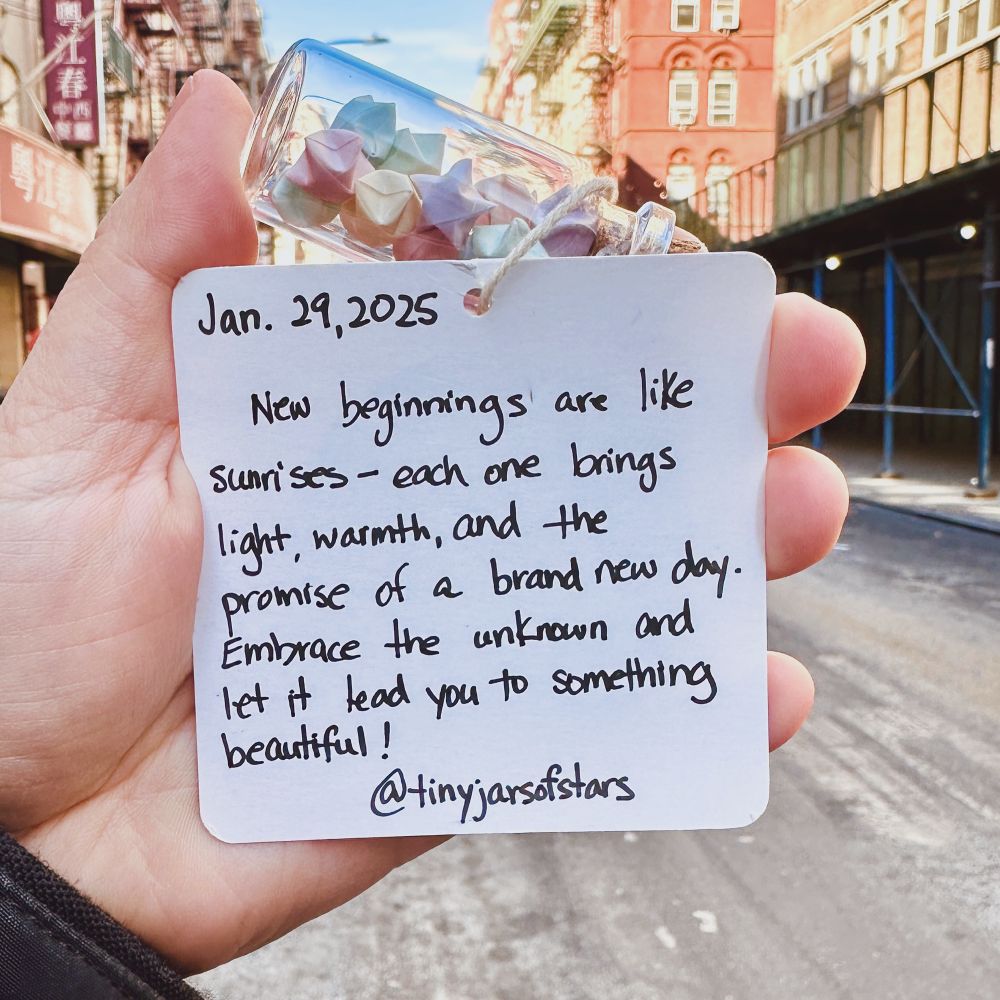 粤江春
中西餐館
粤江春
Jan. 29, 2025
New beginnings are like
sunrises - each one brings
light, warmth, and the
promise of a brand new day.
Embrace the unknown and
let it lead you to something
beautiful!
@tinyjarsofstars